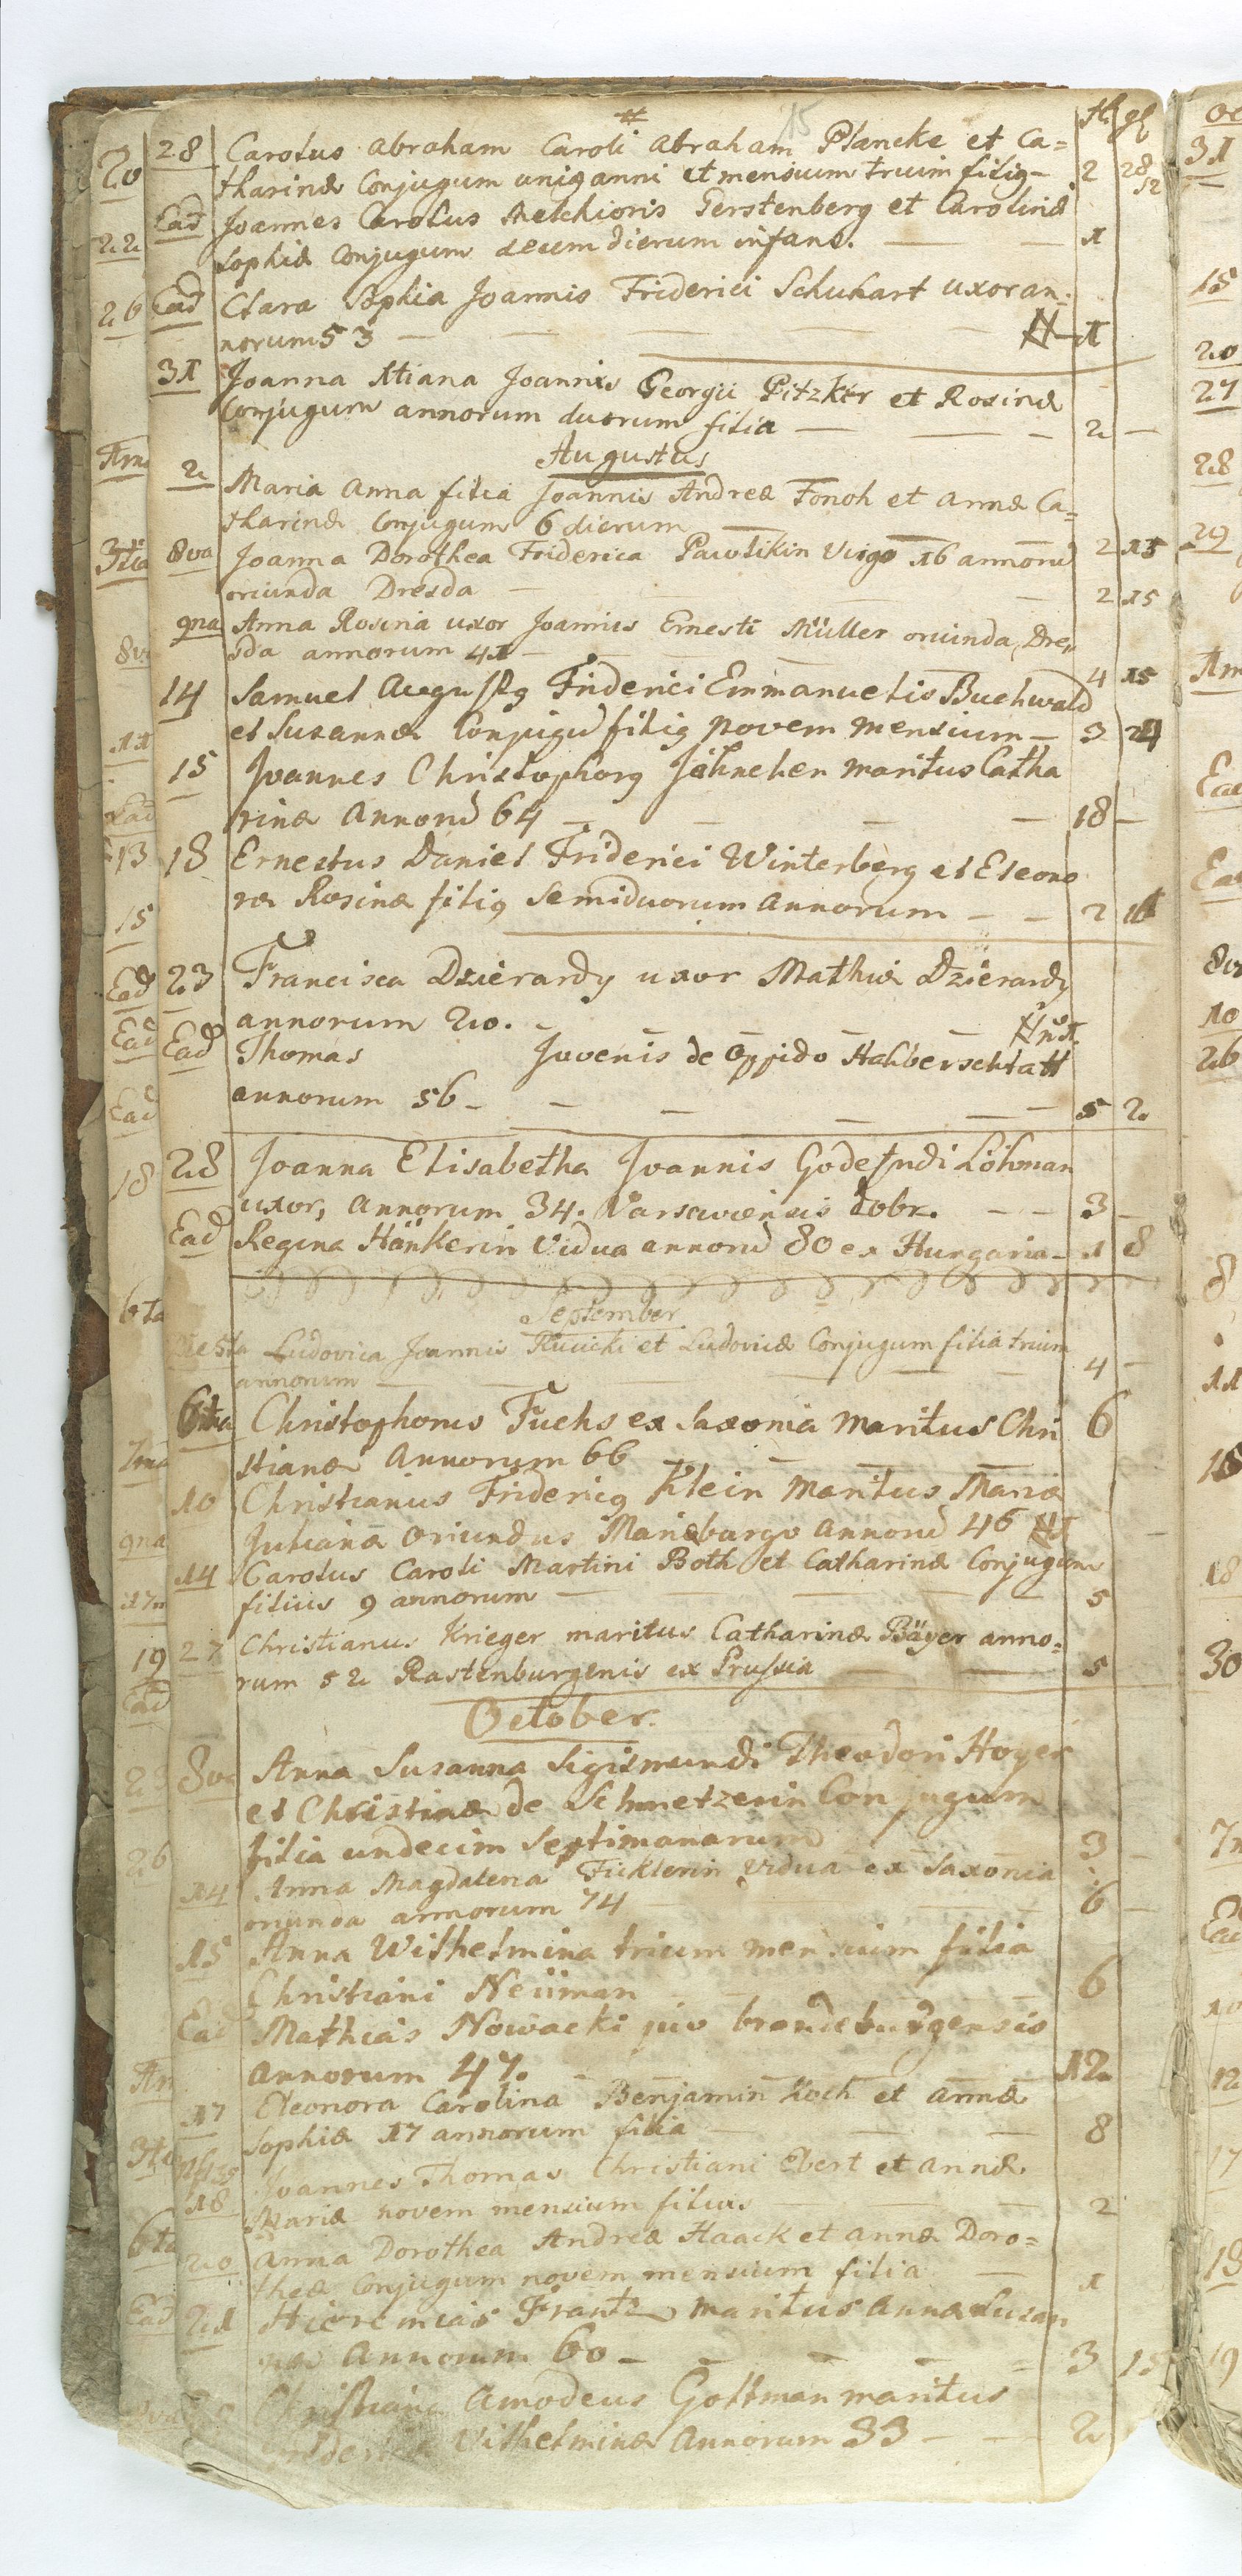 15
fl gl
28 Carolus Abraham Caroli Abraham Plancke et Ca=
tharinæ Conjugum uniq anni et mensium trium filiq - 2 28
12
Ead Joannes Carolus Melchioris Gerstenberg et Carolinæ
Sophiæ Conjugum decem dierum infans. — 1
Ead Clara Sophia Joannis Friderici Schuhart uxor an-
norum 53 — N — 1
31 Joanna Joannis Georgii Pitzker et Rosinæ
Conjugum annorum duorum filia — 2 —
Augustus
2 Maria Anna filia Joannis Andreæ Fonoh et Annæ Ca=
tharinæ Conjugum 6 dierum — 2 15
8va Joanna Dorothea Friderica Pawlikin Virgo 16 annorū
oriunda Dresda — 2 15
9na Anna Rosina uxor Joannis Ernesti Müller oriunda Dre„
sda annorum 41 — 4 15
14 Samuel Augustq Friderici Emmanuelis Buchwald
et Susannæ Conjugū filiq novem mensium — 3 24
15 Joannes Christophorq Jähnchen maritus Catha
rinæ Annorū 64 — 18 —
18 Ernestus Daniel Friderici Winterberg et Eleono
ræ Rosinæ filiq Semiduorum Annorum — 2
23 Francisca Dzierardy uxor Mathiæ Dzierardy
annorum 20.
Ead Thomas Juvenis de Oppido Halberschtatt
annorum 56 — 5 2
28 Joanna Elisabetha Joannis Godefridi Löhman
uxor, Annorum 34. Varsaviensis Dobr. — 3 —
Ead Regina Hänkerin Vidua annorū 80 ex Hungaria - 1 8
September
Die 5ta Ludovica Joannis Rucicki et Ludovicæ Conjugum filia trium
annorum — 4 —
6ta Christophorus Fuchs ex Saxonia Maritus Chri 6
stianæ Annorum 66
10 Christianus Fridericq Klein Maritus Mariæ
Julianæ Oriundus Mariæburgo Annorū 46
14 Carolus Caroli Martini Both et Catharinæ Conjugum
filius 9 annorum — 5
27 Christianus Krieger maritus Catharinæ Bäyer anno=
rum 52 Rastenburgenis ex Prussia — 5
October.
8va Anna Susanna Sigismundi Theodori Hoyer
et Christinæ de Schmetzerin Conjugum
filia undecim Septimanarum 3 —
14 Anna Magdalena Ficklerin Vidua ex Saxonia
oriunda annorum 74 — 6 —
15 Anna Wilhelmina trium mensium filia
Christiani Neüman — 6
Ead Mathias Nowacki brandeburgensis
Annorum 47. — 12
17 Eleonora Carolina Benjamin Koch et Annæ
Sophiæ 17 annorum filia — 8
18 Joannes Thomas Christiani Ebert et Annæ
Mariæ novem mensium filius — 2
20 Anna Dorothea Andreæ Haack et Annæ Doro=
theæ Conjugum novem mensium filia — 1
21 Hieremias Frantz maritus Annæ Susan
næ Annorum 60 — 3 15
Christianq Amodeus Gottman maritus
Vilhelminæ Annorum 33 — 2